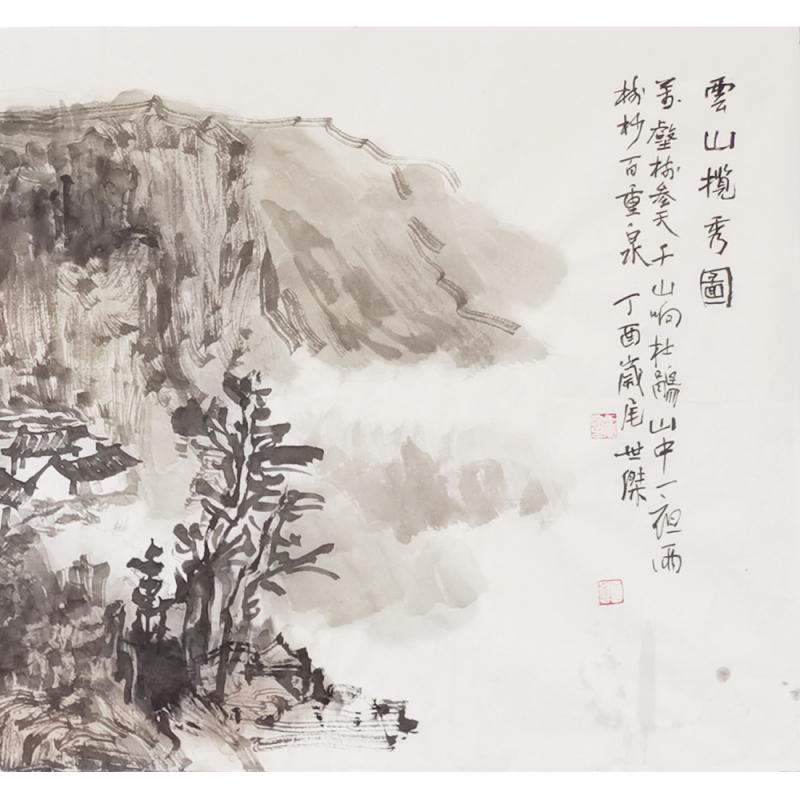 雲山揽秀圖
萬壑树參天千山响杜鵑山中一夜雨
树杪百重泉 丁酉歲尾 世傑